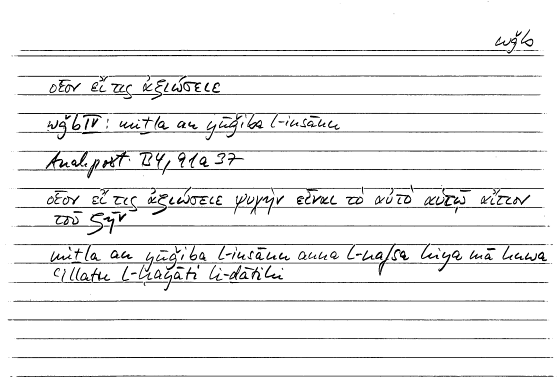 wǧb
οἷον εἴ τις ἀξιώσειε
wǧb IV : miṯla an yūǧiba l-insānu
Anal. post. B4, 91a37
οἷον εἴ τις ἀξιώσειε ψυχὴν εἶναι τὸ αὐτὸ αὑτῷ αἴτιον
τοῦ ζῆν
miṯla an yūǧiba l-insānu anna l-nafsa hiya mā huwa
ʿillatu l-ḥayāti li-ḏātihi